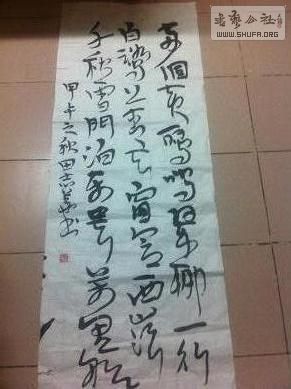 兩個黃鸝鳴翠柳一行
白鷺上青天窗含西嶺
千秋雪門泊東吳萬里船
甲午之秋田志書
書藝公社
WWW.SHUFA.ORG